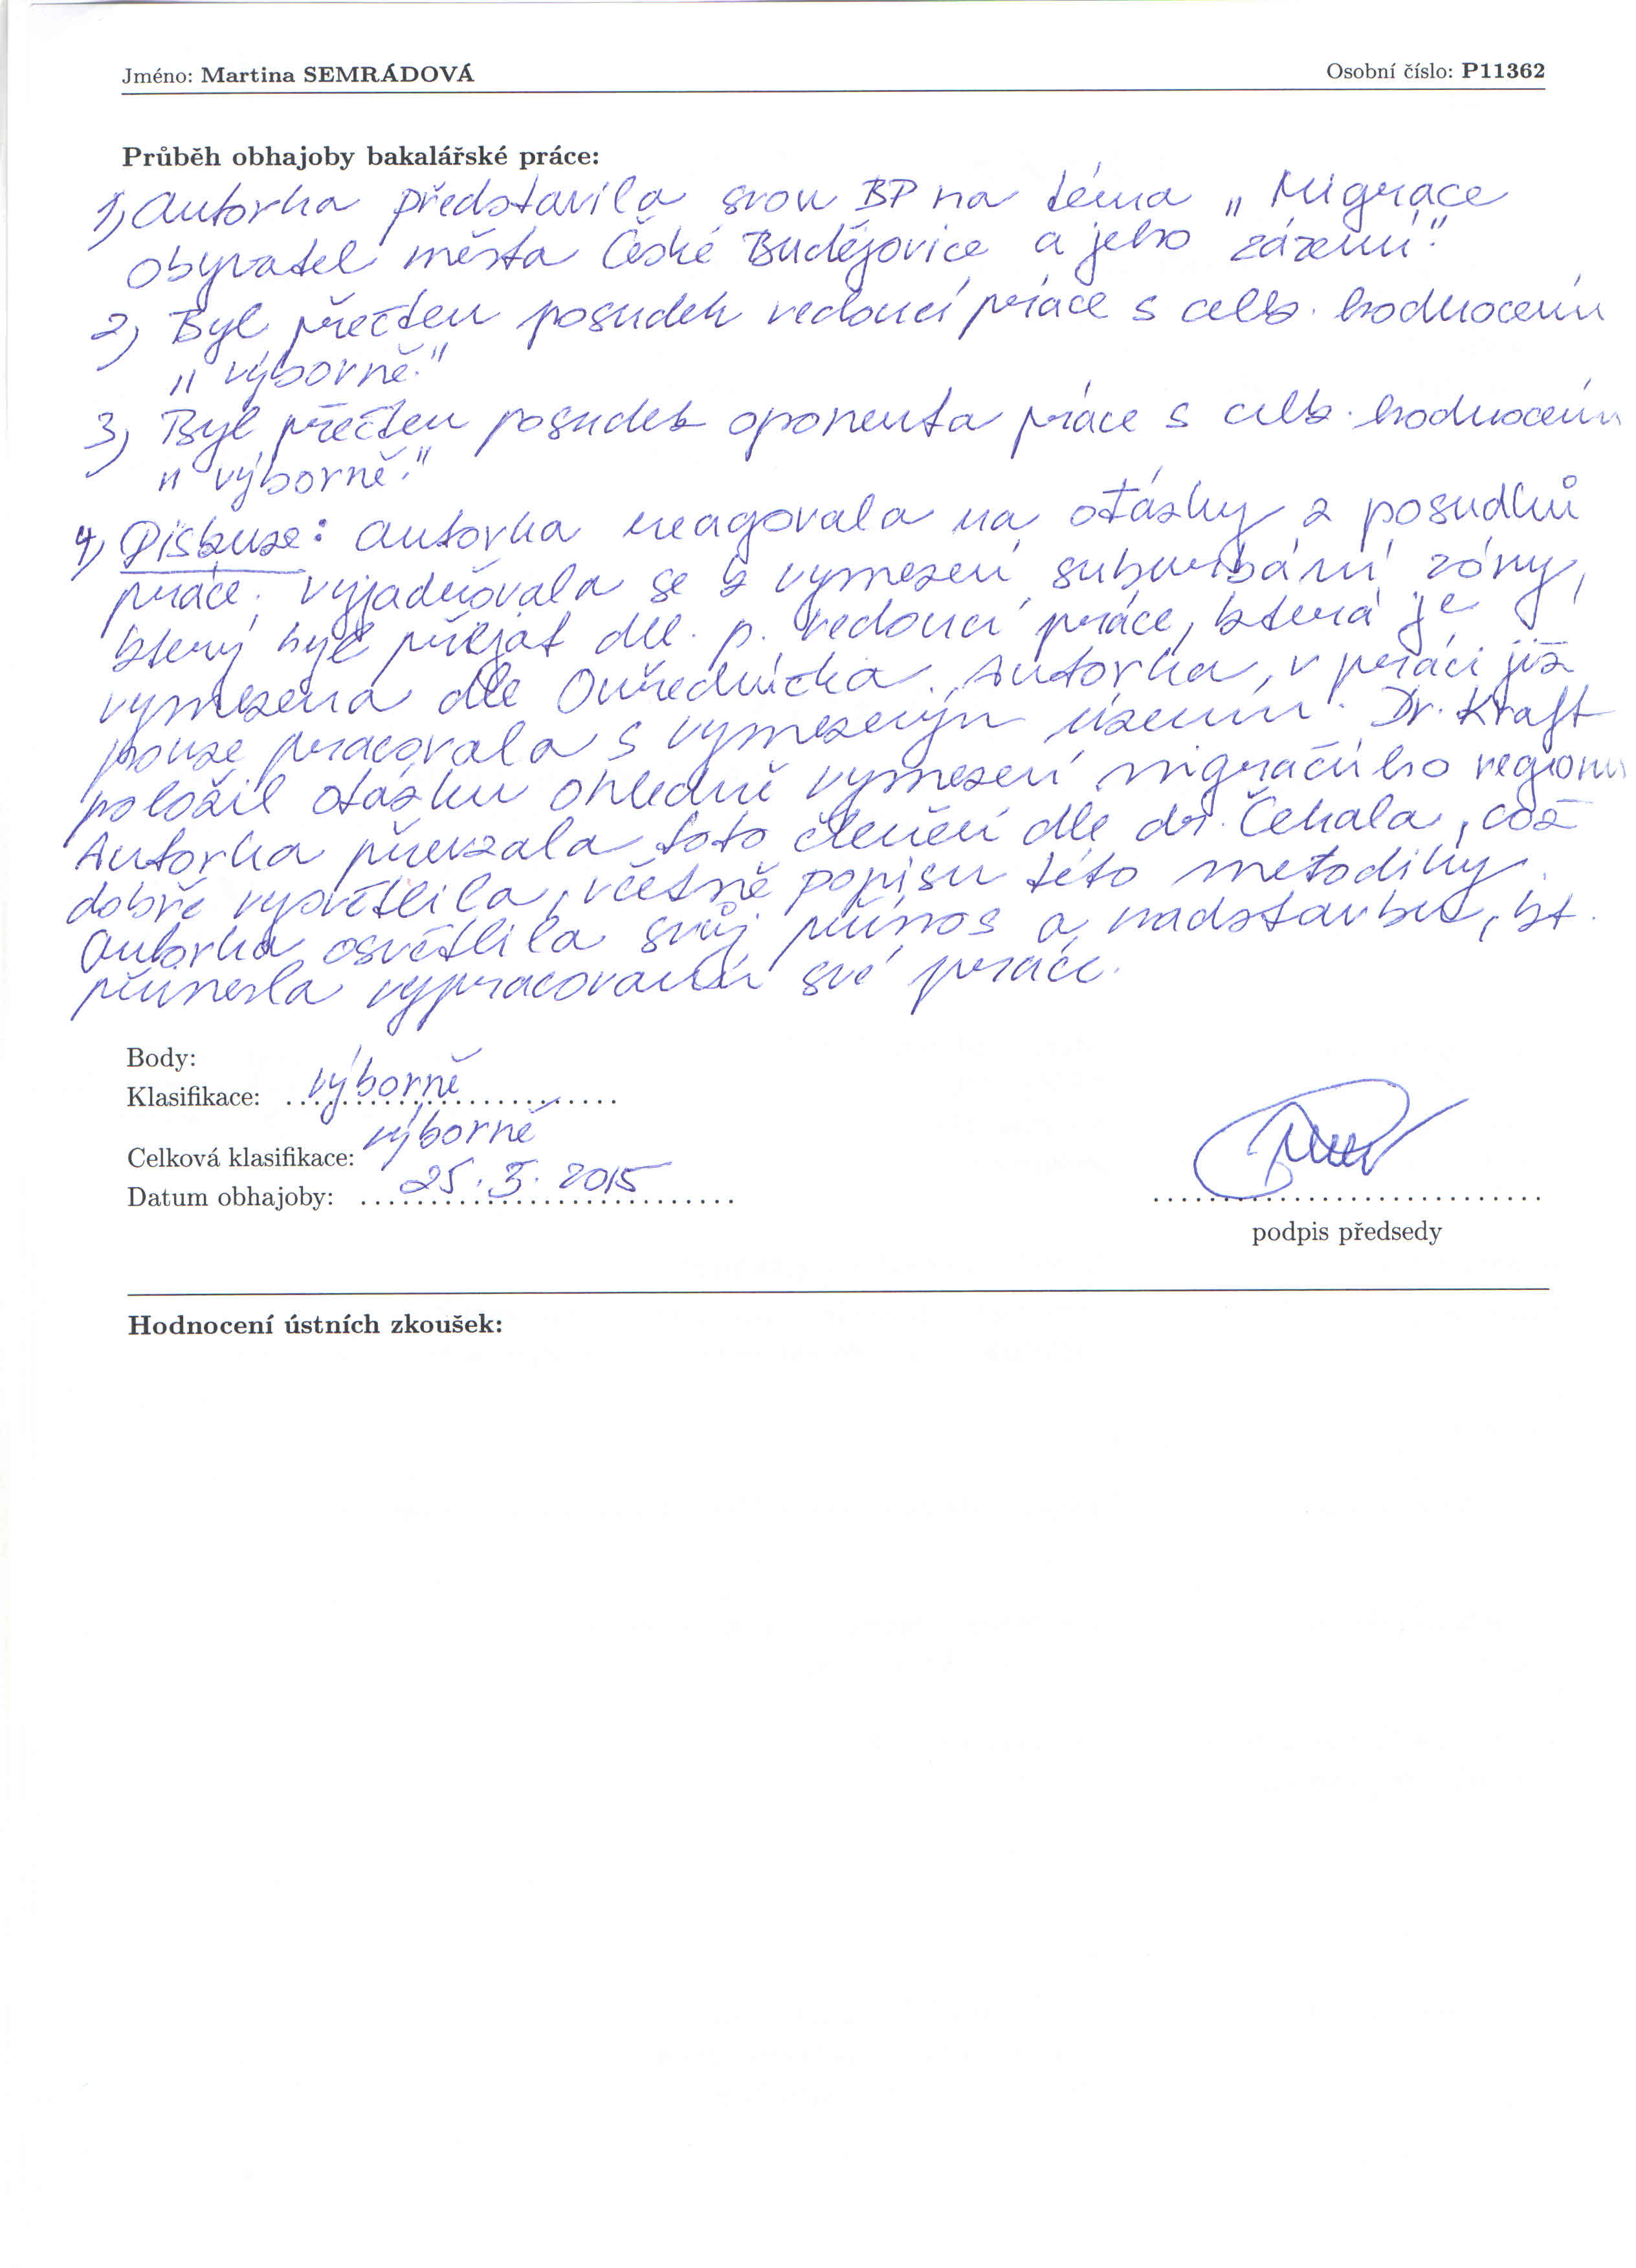 Jméno: Martina SEMRÁDOVÁ Osobní číslo: P11362
Průběh obhajoby bakalářské práce:
1) Autorka představila svou BP na téma „Migrace
obyvatel města České Budějovice a jeho zázemí."
2) Byl přečten posudek vedoucí práce s celk. hodnocením
„výborně."
3) Byl přečten posudek oponenta práce s celk. hodnocením
„výborně."
4) Diskuze: Autorka reagovala na otázky z posudků
práce. Vyjadřovala se k vymezení suburbání zóny,
který byl přijat dle. p. vedoucí práce, která je
vymezena dle Ouředníčka. Autorka v práci již
pouze pracovala s vymezeným územím. Dr. Kraft
položil otázku ohledně vymezení migračního regionu
Autorka převzala toto členění dle dr. Čekala, což
dobře vysvětlila, včetně popisu této metodiky.
Autorka osvětlila svůj přínos a nadstavbu, kt.
přinesla vypracováním své práce.
Body:
Klasifikace: výborně
Celková klasifikace: výborně
Datum obhajoby: 25. 5. 2015
podpis předsedy
Hodnocení ústních zkoušek: